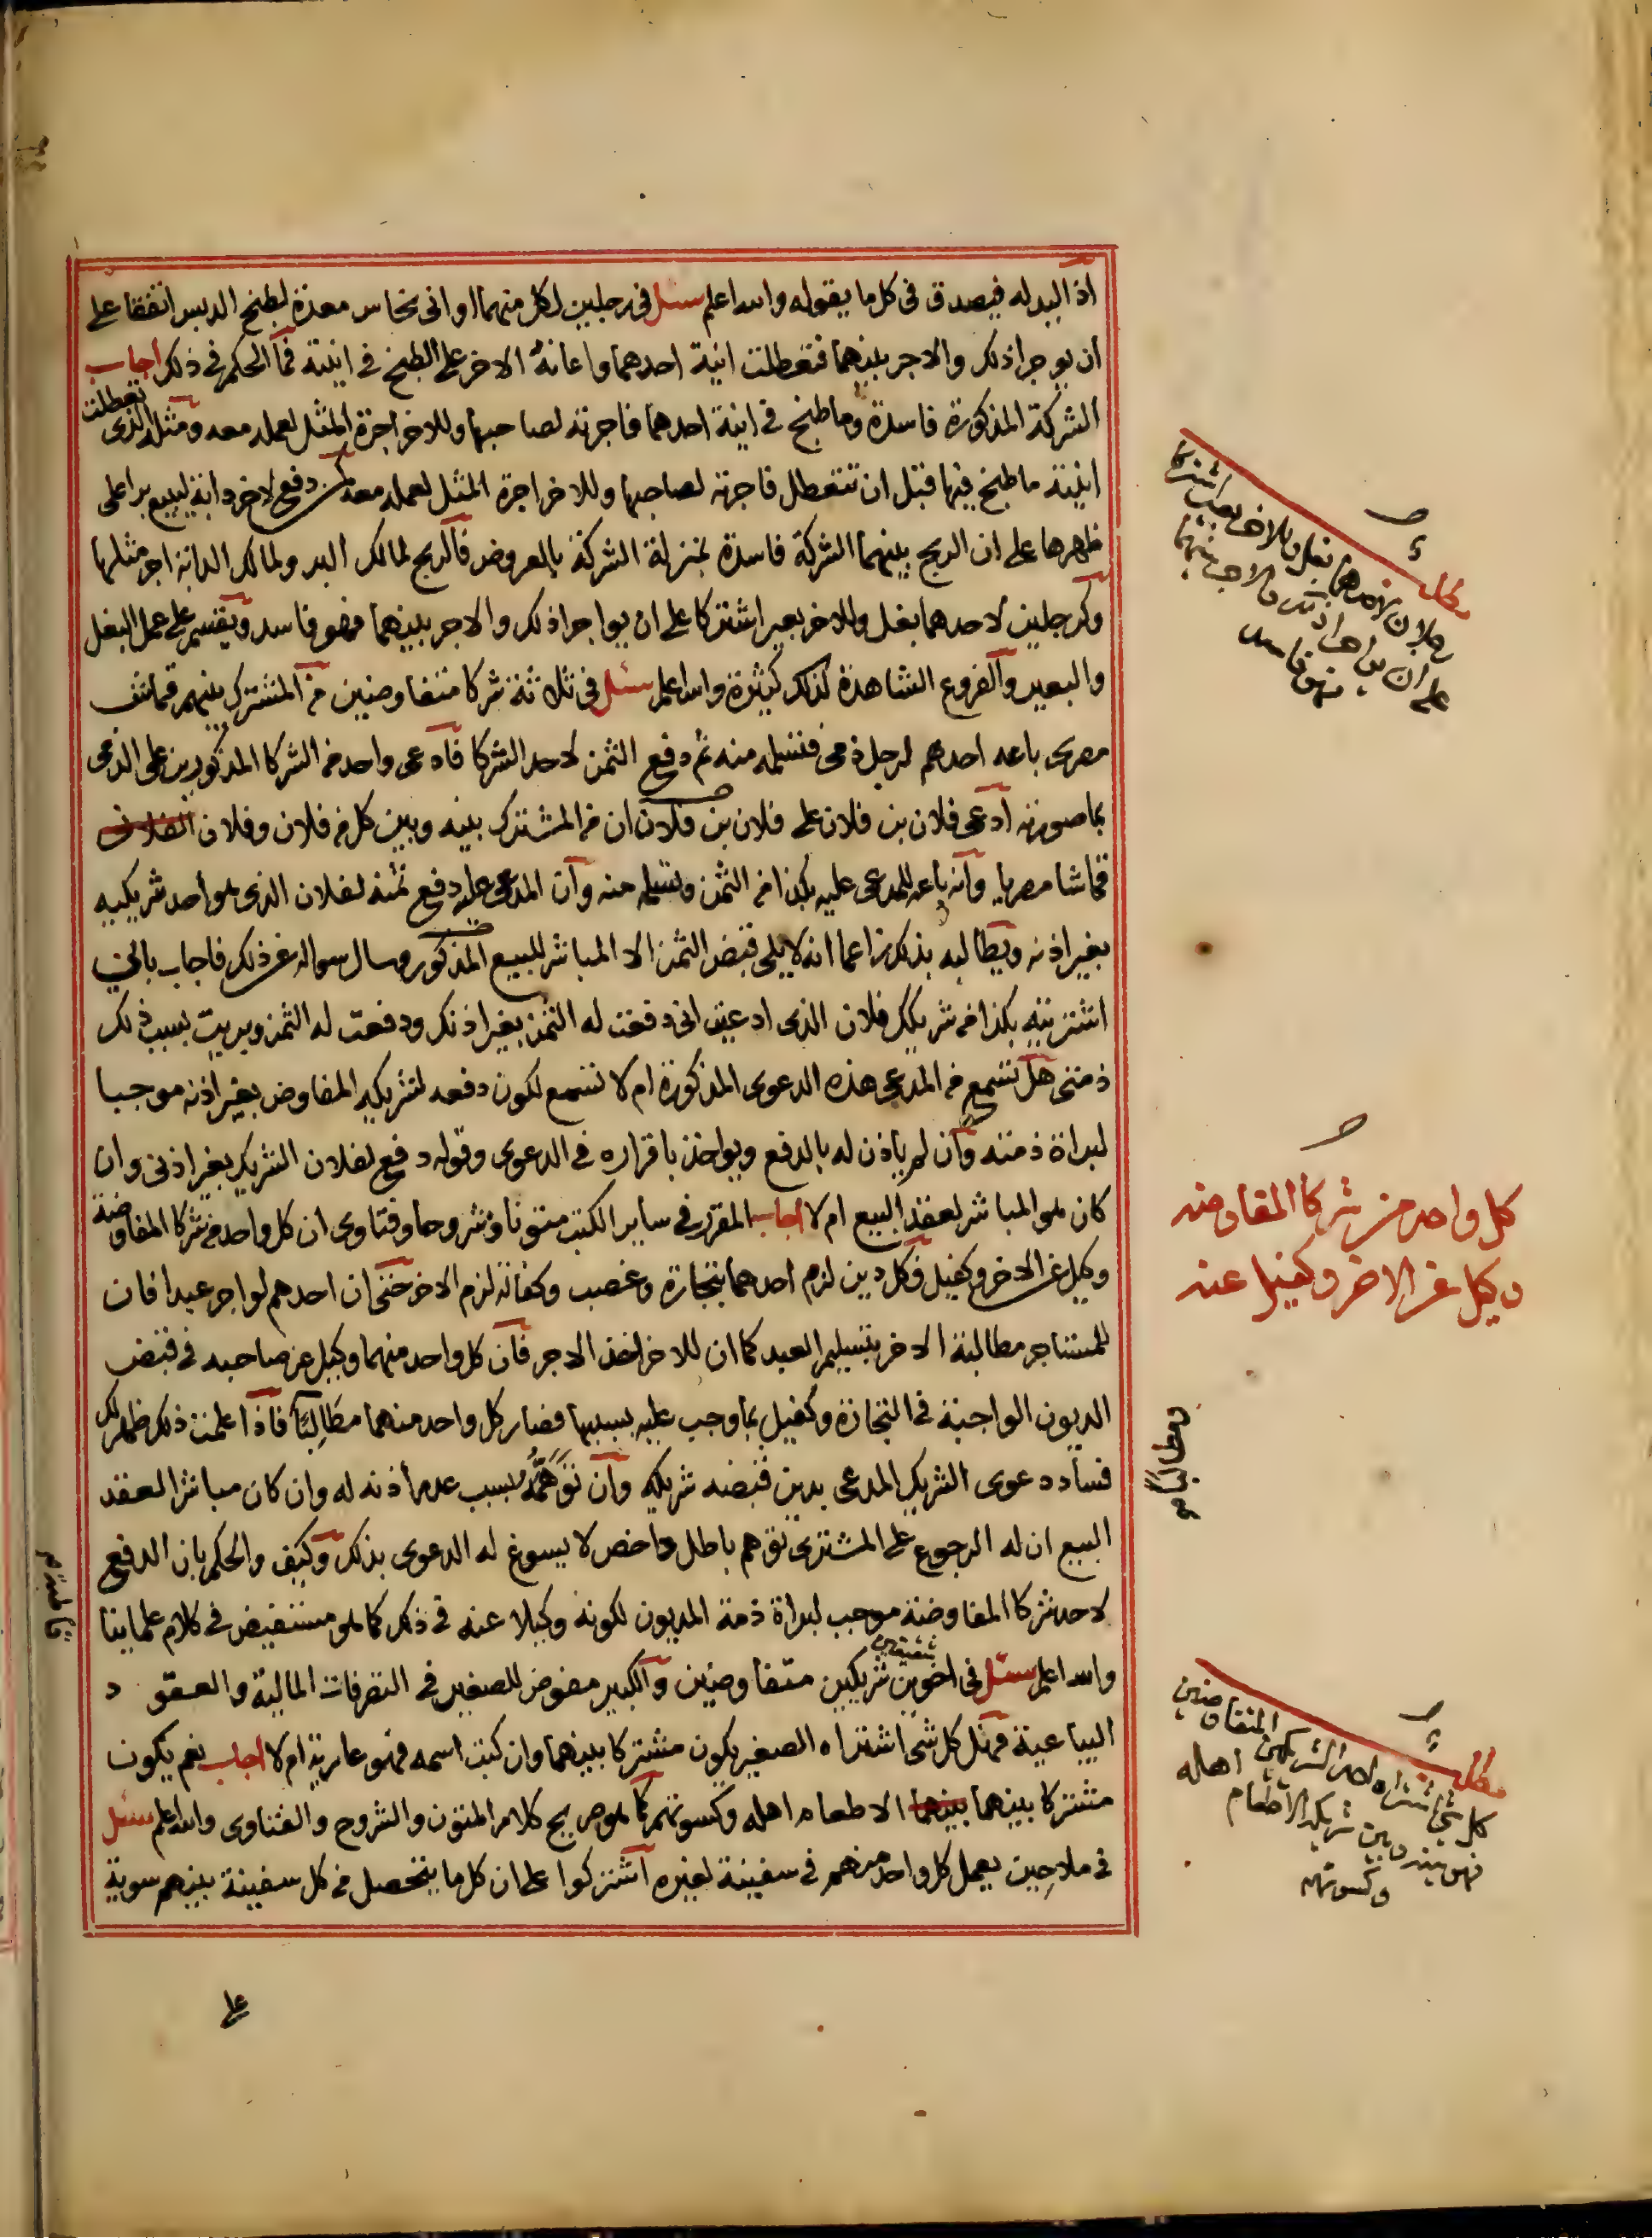 اذ اليد له فيصدق فى كل ما يقوله والله اعلم سئل فى رجلين لكل منهما اوانى نحاس معدة لطبخ الدبس اتفقا على
ان يوجرا ذلك والاجر بينهما فتعطلت انية احدهما واعانه الاخر على الطبخ فى انيته فما الحكم فى ذلك اجاب
الشركة المذكورة فاسدة وما طبخ فى انية احدهما فاجرته لصاحبها وللاخر اجرة المثل لعمله معه ومثله الذى تعطلت
انيته ما طبخ فيها قبل ان تتعطل فاجرته لصاحبها وللاخر اجرة المثل لعمله معه كمن دفع لاخر دابة ليبيع برا على
ظهرها على ان الربح بينهما الشركة فاسدة بمنزلة الشركة بالعروض فالربح لمالك البر ولمالك الدابة اجر مثلها
وكرجلين لاحدهما بغل وللاخر بعير اشتركا على ان يواجرا ذلك والاجر بينهما فهو فاسد ويقسم على عمل البغل
والبعير والفروع الشاهدة كذلك كثيرة والله اعلم سئل فى ثلاثة شركا متفاوضين من المشترك بينهم قماش
مصرى باعه احدهم لرجل ذمى فتسلمه منه ثم دفع الثمن لاحد الشركا فادعى واحد من الشركا المذكورين على الذمى
بما صورته ادعى فلان بن فلان على فلان بن فلان ان من المشترك بينه وبين كل من فلان وفلان
قماشا مصريا وانه باعه للمدعى عليه بكذا من الثمن وتسلمه منه وان المدعى عليه دفع ثمنه لفلان الذى هو احد شريكيه
بغير اذنه ويطالبه بذلك زاعما انه لا يلى قبض الثمن الا المباشر للبيع المذكور وسال سواله عن ذلك فاجاب بانى
اشتريته بكذا من شريكك فلان الذى ادعيت انى دفعت له الثمن بغير اذنك ودفعت له الثمن وبريت بسبب ذلك
ذمتى هل تسمع من المدعى هذه الدعوى المذكورة ام لا تسمع لكون دفعه لشريكه المفاوض بغير اذنه موجبا
لبراة ذمته وان لم ياذن له بالدفع ويواخذ باقراره فى الدعوى وقوله دفع لفلان الشريك بغير اذنى وان
كان هو المباشر لعقد البيع ام لا اجاب المقرر فى ساير الكتب متونا وشروحا وفتاوى ان كل واحد من شركا المفاوضة
وكيل عن الاخر وكفيل فكل دين لزم احدهما بتجارة وغصب وكفالة لزم الاخر حتى ان احدهم لو اجر عبدا فان
للمستاجر مطالبة الاخر بتسليم العبد كما ان للاخر اخذ الاجر فان كل واحد منهما وكيل عن صاحبه فى قبض
الديون الواجبة فى التجارة وكفيل بما وجب عليه بسببها فصار كل واحد منهما مطالِبًا فاذا علمت ذلك ظهر لك
فساد دعوى الشريك المدعى بدين قبضه شريكه وان توهمه بسبب عدم اذنه له وان كان مباشر العقد
البيع ان له الرجوع على المشترى توهم باطل داحض لا يسوغ له الدعوى بذلك وكيف والحكم بان الدفع
لاحد شركا المفاوضة موجب لبراة ذمة المديون لكونه وكيلا عنه فى ذلك كما هو مستفيض فى كلام علماينا
والله اعلم سئل فى اخوين شقيقين شريكين متفاوضين والكبير مفوض للصغير فى التصرفات المالية والعقود
البياعية فهل كل شى اشتراه الصغير يكون مشتركا بينهما وان كتب اسمه فهو عارية ام لا اجاب نعم يكون
مشتركا بينهما بينهما الا طعام اهله وكسوتهم كما هو صريح كلام المتون والشروح والفتاوى والله اعلم سئل
فى ملاحين يعمل كل واحد منهم فى سفينة لغيره اشتركوا على ان كل ما يتحصل من كل سفينة بينهم سوية
على
مطلب
رجلان لاحدهما بغل وللاخر بعير اشتركا
على ان يواجرا ذلك والاجر بينهما
فهو فاسد
كل واحد من شركا المفاوضه
وكيل عن الاخر وكفيل عنه
ومطالبا
مطلب
كل شى اشتراه احد الشريكين المتفاوضين
فهو بينه وبين شريكه الا طعام اهله
وكسوتهم